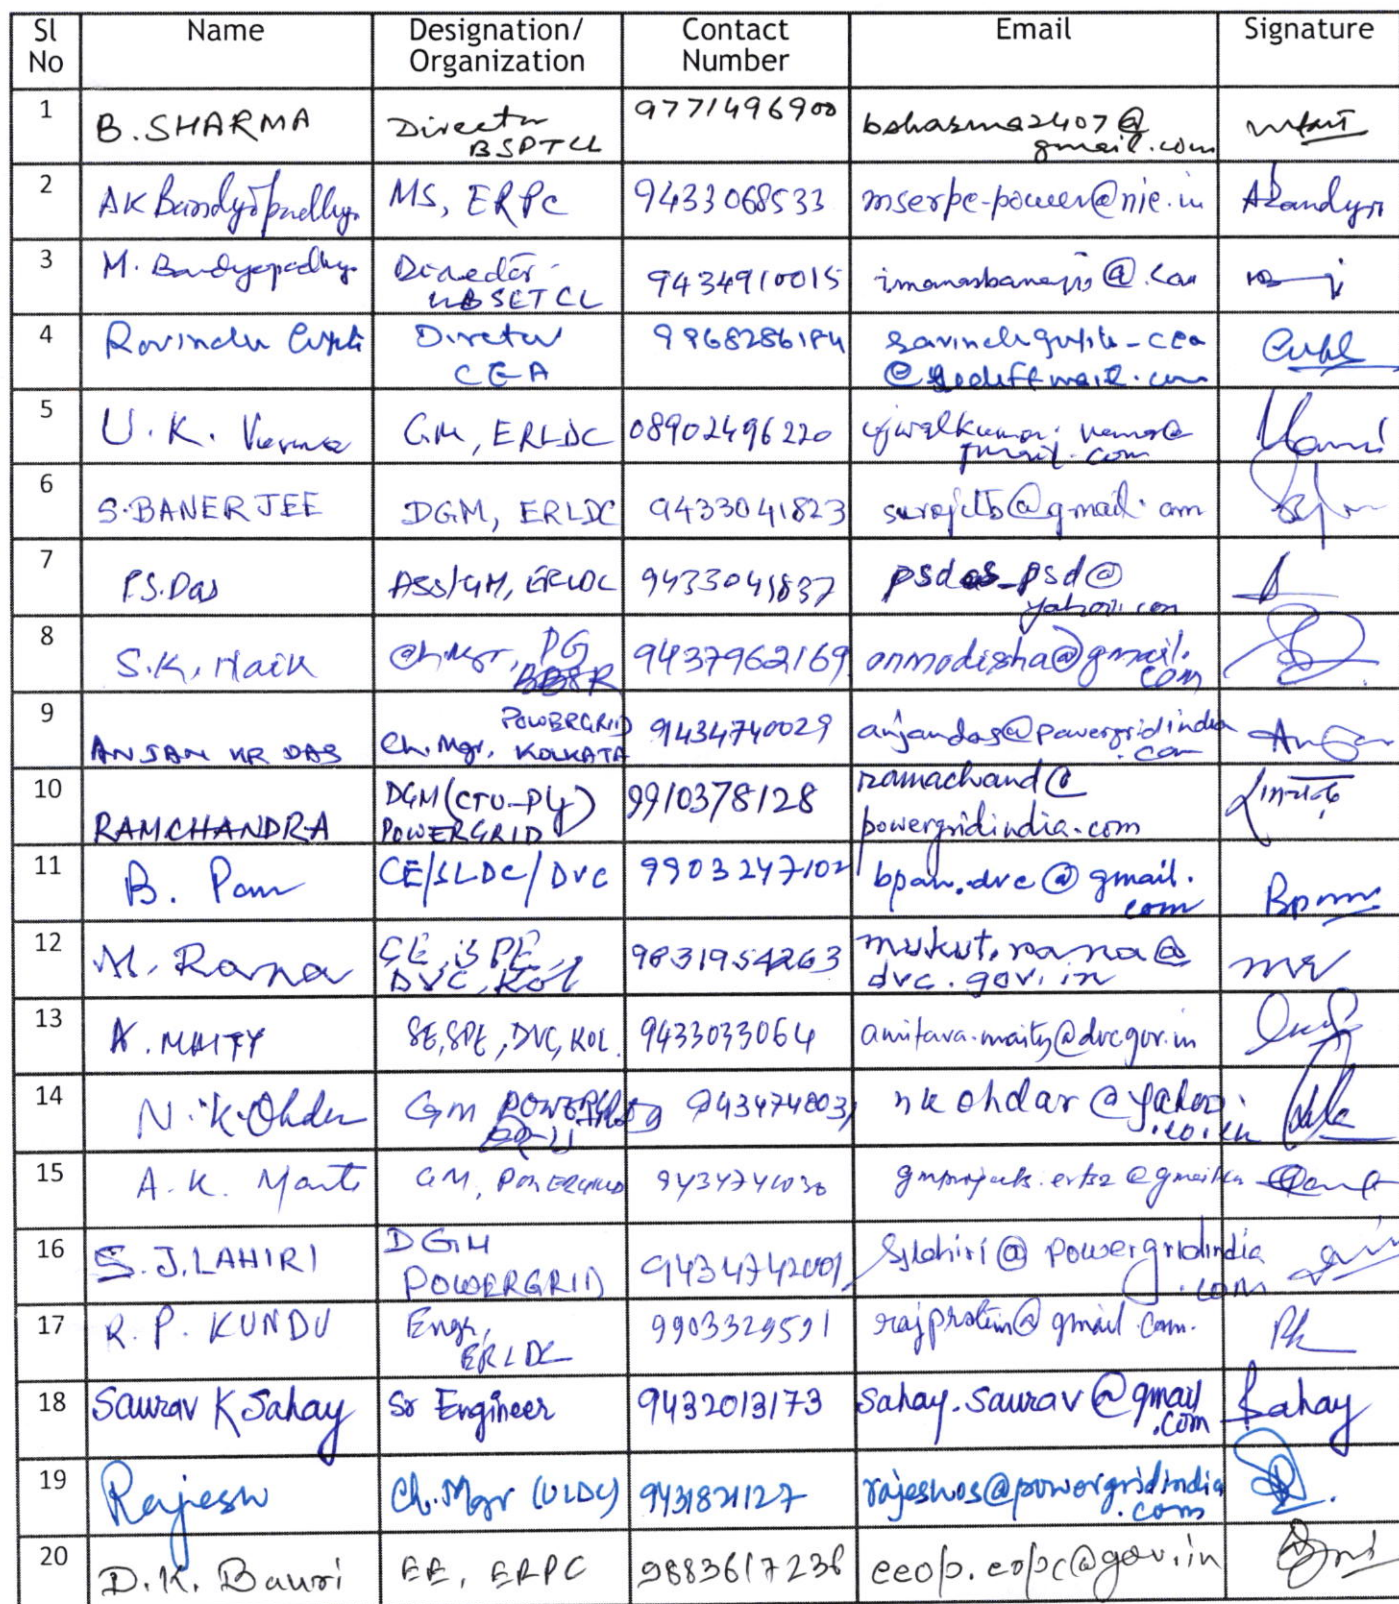 Sl No Name Designation/ Organization Contact Number Email Signature
1 B. SHARMA Director BSPTCL 9771496900 bsharma2407@ gmail.com
2 AK Bandyopadhyay MS, ERPC 9433068533 mserpc-power@nic.in
3 M. Bandyopadhyay Director WBSETCL 9434910015
4 Ravinder Gupta Director CEA
5 U. K. Verma GM, ERLDC 08902496220 ujwalkumar.verma@ gmail.com
6 S. BANERJEE DGM, ERLDC 9433041823 surajitb@gmail.com
7 P.S. Das Asst GM, ERLDC 9433041837 psdas_psd@ yahoo.com
8 S.K. Naik Ch.Mgr, PG BBSR 9437962169 onmodisha@gmail. com
9 ANJAN KR DAS Ch. Mgr, POWERGRID KOLKATA 9434740029 anjandas@powergridindia .com
10 RAMCHANDRA DGM (CTU-Plg) POWERGRID 9910378128 ramachand@ powergridindia.com
11 B. Pan CE/SLDC/DVC 9903247102 bpan.dvc@gmail. com Bpan
12 M. Rana CE, SPE, DVC, Kol 9831954263 mukut.rana@ dvc.gov.in
13 A. MAITY SE, SPE, DVC, KOL. 9433033064 amitava.maity@dvc.gov.in
14 N. K. Ohdar GM POWERGRID nkohdar@yahoo. co.in
15 A. K. GM, POWERGRID
16 S. J. LAHIRI DGM POWERGRID sjlahiri@powergridindia .com
17 R. P. KUNDU Engr, ERLDC 9903329591 rajprotim@gmail.com.
18 Saurav K Sahay Sr Engineer 9432013173 Sahay.saurav@gmail .com Sahay
19 Rajesh Ch. Mgr (ULDC) rajeshos@powergridindia .com
20 D.K. Bauri EE, ERPC 9883617236 eeop.erpc@gov.in